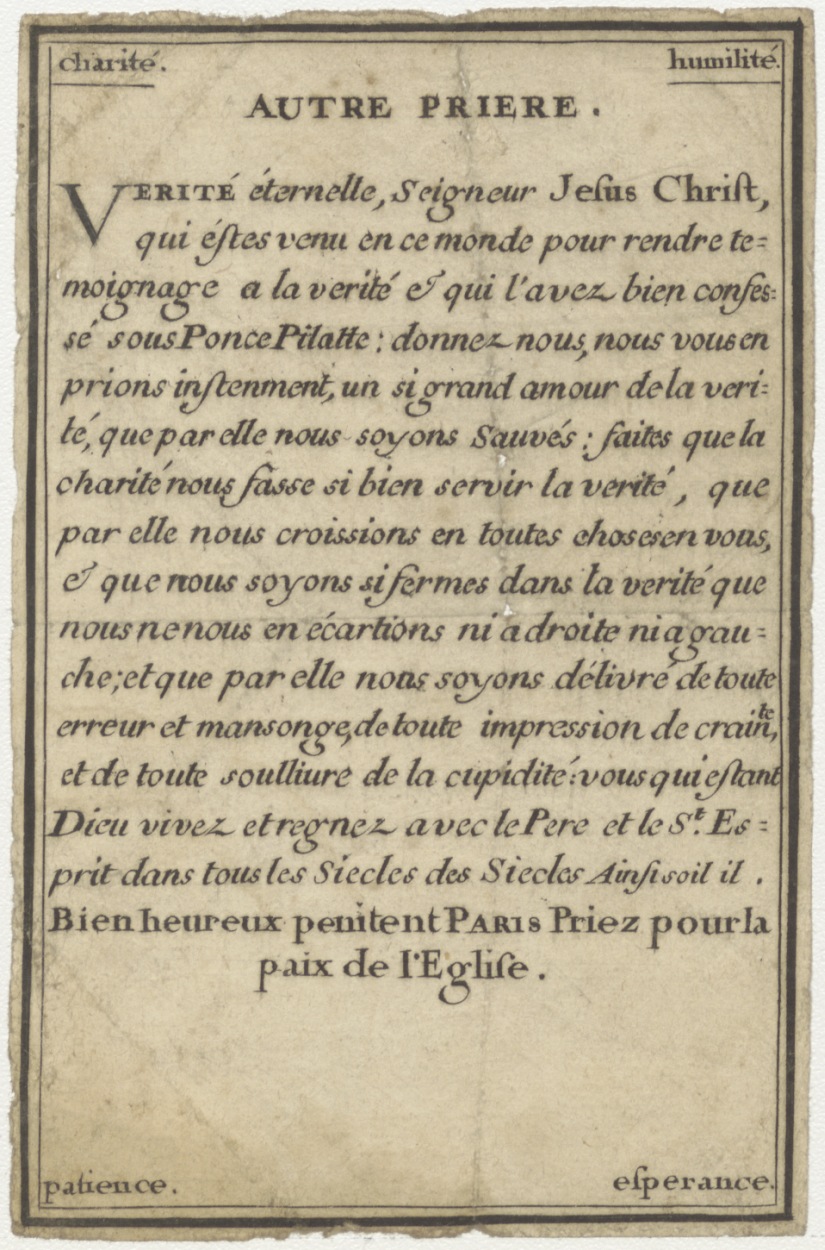 charité. humilité.
AUTRE PRIERE.
VERITÉ éternelle, Seigneur Jeſus Chriſt,
qui éſtes venu en ce monde pour rendre te=
moignage a la verité & qui l'avez bien confes=
sé sous Ponce Pilatte: donnez nous, nous vous en
prions inſtenment, un si grand amour de la veri=
té, que par elle nous soyons Sauvés: faites que la
charité nous fâsse si bien servir la verité, que
par elle nous croissions en toutes choses en vous,
& que nous soyons si fermes dans la verité que
nous ne nous en écartions ni a droite ni a gau=
che; et que par elle nous soyons délivré de toute
erreur et mansonge, de toute impression de crainte,
et de toute soulliure de la cupidité: vous qui eſtant
Dieu vivez et regnez avec le Pere et le St. Es=
prit dans tous les Siecles des Siecles Ainſi soil il.
Bienheureux penitent PARIS Priez pour la
paix de l'Egliſe.
patience. eſperance.